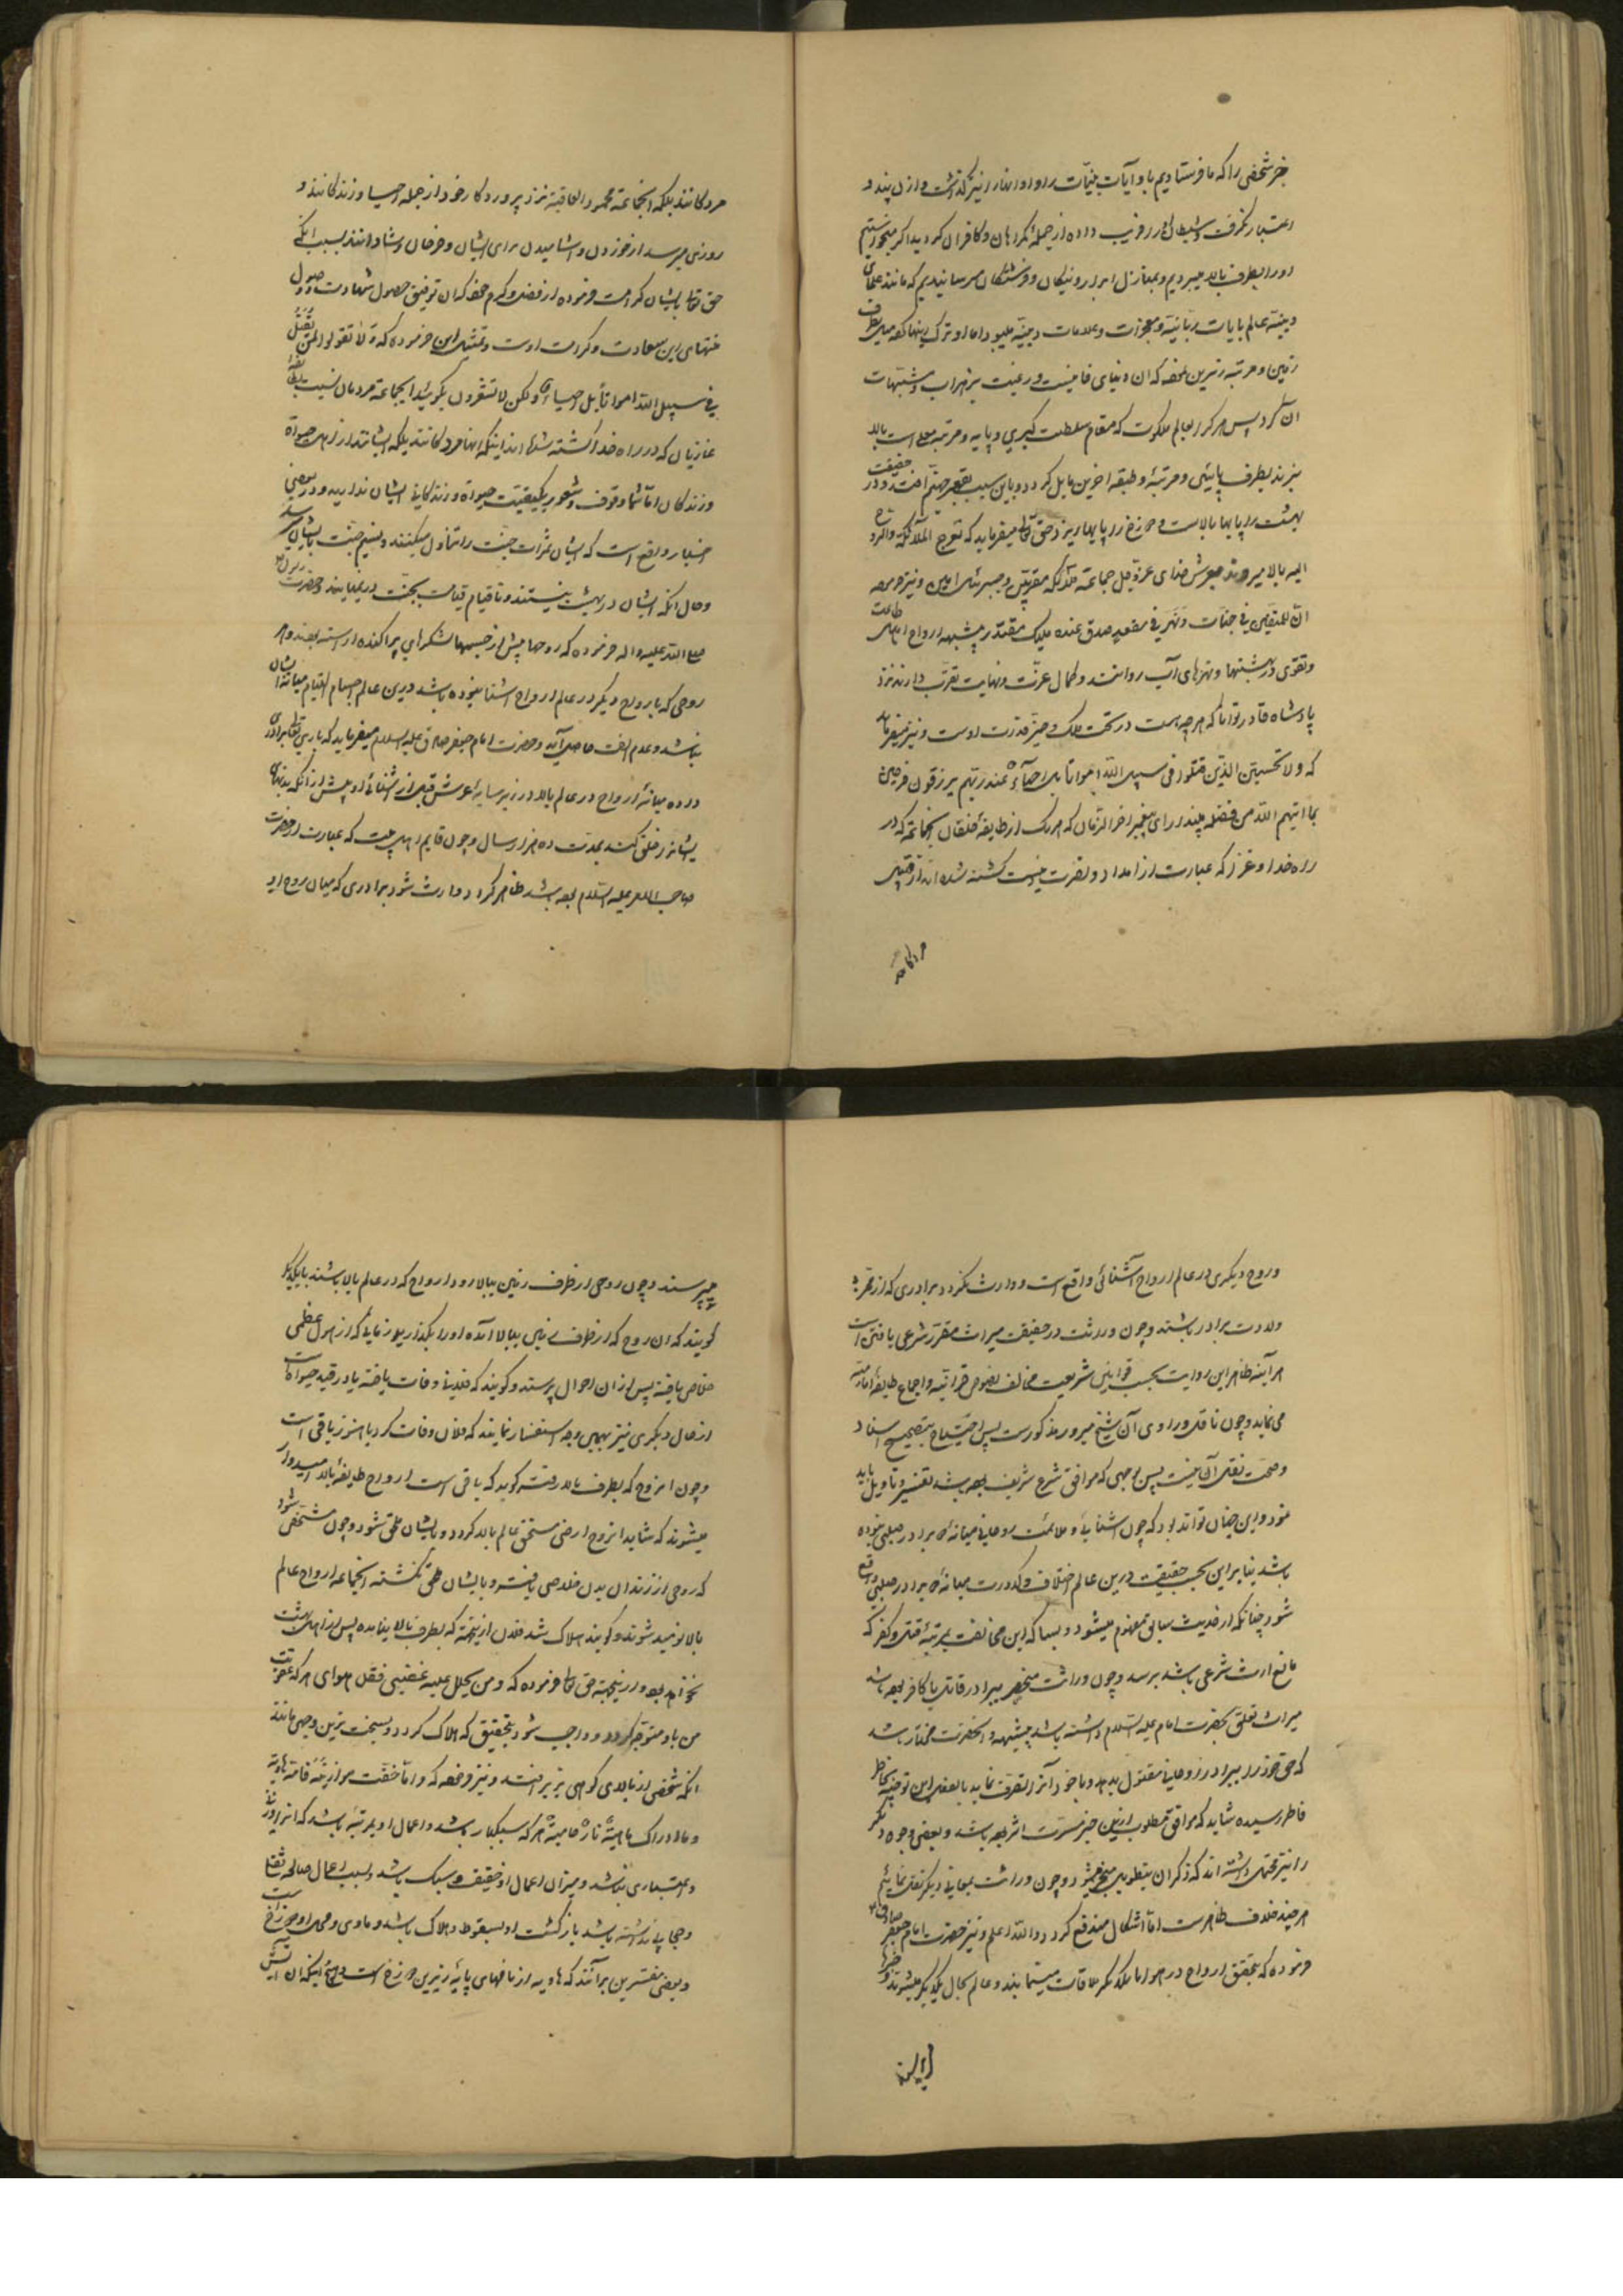 خبر شخصی را که ما فرستادیم باو آیات بینات را و او انها را نیز گذاشت و ازان پند و
اعتبار نگرفت و شیطان او را فریب داده از جمله گمراهان و کافران گردید اگر میخواستیم
او را بطرف بالا میبردیم و بمنازل ابرار و نیکان و فرشتگان میرسانیدیم که مانند علمای
دینیه عالم بایات ربانیه و معجزات و علامات دینیه میبود اما او ترک اینها کرده میل بطرف
زمین و مرتبه زیرین کرده که ان دنیای فانیست و رغبت بر شراب و مشتهیات
آن کرد پس هر که را بعالم ملکوت که مقام سلطنت کبری و پایه و مرتبه معلی است بالا
نبرند بطرف پایینی و مرتبه و طبقه اخرین مایل گردد و باین سبب بقعر جهنم افتد و در حقیقت
بهشت را پایها بالاست و دوزخ را پایها زیر و حق تعالی میفرماید که تعرج الملائکة والروح
الیه بالا میروند بعرش خدای عز و جل جماعة ملائکه مقربین و جبرئیل امین و نیز فرموده
ان المتقین فی جنات و نهر فی مقعد صدق عند ملیک مقتدر بیشبهه ارواح اهل طاعت
و تقوی در بهشتها و نهرهای آب روانند و کمال عزت و نهایت تقرب دارند نزد
پادشاه قادر توانا که هر چه هست در تحت ملک و حیز قدرت اوست و نیز میفرماید
که ولا تحسبن الذین قتلوا فی سبیل الله امواتا بل احیآء عند ربهم یرزقون فرحین
بما اتیهم الله من فضله پندار ای پیغمبر اخر الزمان که هر یک از طایفه خلقان بجماعة که در
راه خدا و غزا که عبارت از امداد و نصرت دینست کشته شده اند از قبیل
مردکانند
مردکانند بلکه انجماعة محمود العاقبة نزد پروردکار خود از جمله احیا و زندکانند و
روزی میرسد از خوردن و اشامیدن برای ایشان و فرحان و شادانند بسبب انکه
حق تعالی بایشان کرامت فرموده از فضل و کرم خود که ان توفیق حصول شهادت و وصول
منتهای این سعادت و کرامت اوست و بمثل این فرموده که ولا تقولوا لمن یقتل
فی سبیل الله امواتا بل احیاء ولکن لا تشعرون یکوئید ایجماعة مردمان نسبت بطایفه
غازیان که در راه خدا کشته شده اند اینکه انها مردکانند بلکه ایشانند از اهل حیواة
و زندکان اما شما وقوف و شعور بکیفیت حیواة و زندکانی ایشان ندارید و در بعضی
اخبار واقع است که ایشان ثمرات جنت را تناول میکنند و نسیم جنت بایشان میرسد
و حال انکه ایشان در بهشت نیستند و تا قیام قیامت بجنت در نمیایند و حضرت رسول
صلی الله علیه واله فرموده که روحها پیش از جسمها لشکرهای پراکنده اراسته بودند و هر
روحی که با روح دیکر در عالم ارواح اشنا نبوده باشد درین عالم اجسام التیام میانه ایشان
نباشد و عدم الفت حاصل آید و حضرت امام جعفر صادق علیه السلام میفرماید که باری تعالی برادری
داده میانه ارواح در عالم بالا در زیر سایه عرش قبل از پیش ازانکه بدنهای
ایشانرا خلق کند بمدت ده هزار سال و چون قایم اهل بیت که عبارت از حضرت
صاحب الامر علیه السلام بوده باشد ظاهر کردد وارث شود برادری که میان روح او
و روح دیگری در عالم ارواح آشنائی واقع است و وارث نگردد برادری که از ممر
ولادت برادر باشند و چون وراثت در حقیقت میراث مقرر شرعی یافتن است
هر آینه ظاهر این روایت بحسب قوانین شریعت مخالف نصوص قرانیه و اجماع طایفه امامیه
می نماید و چون ناقل و راوی آن شیخ مبرور مذکورست پس احتیاج بتصحیح اسناد
و صحت نقل آن نیست پس بوجهی که موافق شرع شریف بوده باشد تفسیر و تاویل باید
نمود و این چنان تواند بود که چون اشنایی و ملائمت روحانی میانه برادر صلبی نبوده
باشد بنابراین بحسب حقیقت درین عالم اختلاف و کدورت میانه برادر صلبی واقع
شود چنانکه از حدیث سابق مفهوم میشود و بسا که این مخالفت بمرتبه قتل و کفر که
مانع ارث شرعی باشد برسد و چون وراثت منحصر ببرادر قاتل یا کافر بوده باشد
میراث تعلق بحضرت امام علیه السلام داشته باشد بیشبهه و انحضرت مختار باشد
که حق خود را ببرادر روحانی مقتول بدهد و یا خود آنرا تصرف نماید بالفعل این توجیه بخاطر
فاطر رسیده شاید که موافق مطلوب ازین خبر مسرت اثر بوده باشد و بعضی وجوه دیگر
را نیز محتمل داشته اند که ذکر ان بتطویل منجر میشود و چون وراثت بمعانی دیگر نقل نمائیم
هر چند خلاف ظاهرست اما اشکال مندفع کردد والله اعلم و نیز حضرت امام جعفر صادق
فرموده که بتحقیق ارواح در هوا با یکدیگر ملاقات مینمایند و عالم بحال یکدیگر میشوند و خبرها
میپرسند و چون روحی از طرف زمین ببالا رود ارواح که در عالم بالا باشند با یکدیگر
گویند که ان روح که از طرف زمین ببالا آمده او را بگذارید زمانی که از هول عظمی
خلاص یافته پس ازان احوال پرسند و کویند که فلانی وفات یافته یا در قید حیواة است
از حال دیگری نیز بهمین وجه استفسار نمایند که فلان وفات کرد یا هنوز باقی است
و چون انروح که بطرف بالا رفته کوید که باقی است ارواح طایفه بالا امیدوار
میشوند که شاید انروح ارضی مستحق عالم بالا کردد و بایشان ملحق شود و چون مشخص شود
که روحی از زندان بدن خلاصی یافته و بایشان ملحق نکشته انجماعه ارواح عالم
بالا نومید شوند و کویند هلاک شد فلان ازینجهة که بطرف بالا نیامده پس از اهل بهشت
نخواهد بود و ازینجهة حق تعالی فرموده که و من یحلل علیه غضبی فقد هوی ای هر که غضب
من باو متوجه کردد و واجب شود بتحقیق که هلاک کردد و بسخت ترین وجهی مانند
انکه شخصی از بالای کوهی بزیر افتد و نیز فرموده که و اما من خفت موازینه فامه هاویه
و ما ادراک ماهیه نار حامیه هر که سبکبار باشد و اعمال او بمرتبه باشد که انرا وزنی
و اعتباری نباشد و میزان اعمال او خفیف و سبک باشد و بسبب اعمال صالحه ثقلی
و حجابی نداشته باشد بازکشت او بسقوط و هلاک باشد و ماوی و محل او دوزخ است
و بعضی مفسرین برآنند که هاویه از نامهای پایه زیرین دوزخ است و معنی اینکه ان آتش